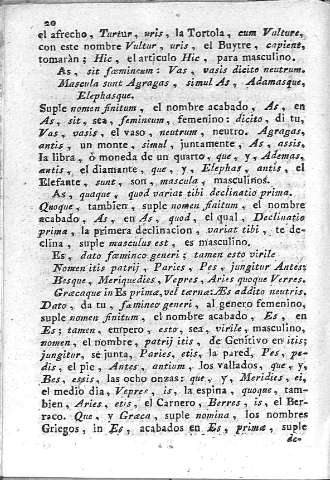 20
el afrecho, Turtur, uris, la Tortola, cum Vulture,
con este nombre Vultur, uris, el Buytre, capient,
tomaràn; Hic, el articulo Hic, para masculino.
As, sit fœmineum: Vas, vasis dicito neutrum.
Mascula sunt Agragas, simul As, Adamasque,
Elephasque.
Suple nomen finitum, el nombre acabado, As, en
As, sit, sea, femineum, femenino: dicito, di tu,
Vas, vasis, el vaso, neutrum, neutro. Agragas,
antis, un monte, simul, juntamente, As, assis,
la libra, ò moneda de un quarto, que, y, Ademas,
antis, el diamante, que, y, Elephas, antis, el
Elefante, sunt, son, mascula, masculinos.
As, quaque, quod variat tibi declinatio prima.
Quoque, tambien, suple nomen finitum, el nombre
acabado, As, en As, quod, el qual, Declinatio
prima, la primera declinacion, variat tibi, te de-
clina, suple masculus est, es masculino.
Es, dato fœmineo generi; tamen esto virile
Nomen itis patrij, Paries, Pes, jungitur Antes:
Besque, Meriquedies, Vepres, Aries quoque Verres.
Græcaque in Es primæ, vel ternæ: Æs addito neutris.
Dato, da tu, fœmineo generi, al genero femenino,
suple nomen finitum, el nombre acabado, Es, en
Es; tamen, empero, esto, sea, virile, masculino,
nomen, el nombre, patrij itis, de Genitivo en itis;
jungitur, se junta, Paries, etis, la pared, Pes, pe-
dis, el pie, Antes, antium, los vallados, que, y,
Bes, essis, las ocho onzas: que, y, Meridies, ei,
el medio dia, Vepre, is, la espina, quoque, tam-
bien, Aries, etis, el Carnero, Berres, is, el Ber-
raco. Que, y Græca, suple nomina, los nombres
Griegos, in Es, acabados en Es, primæ, suple
de-